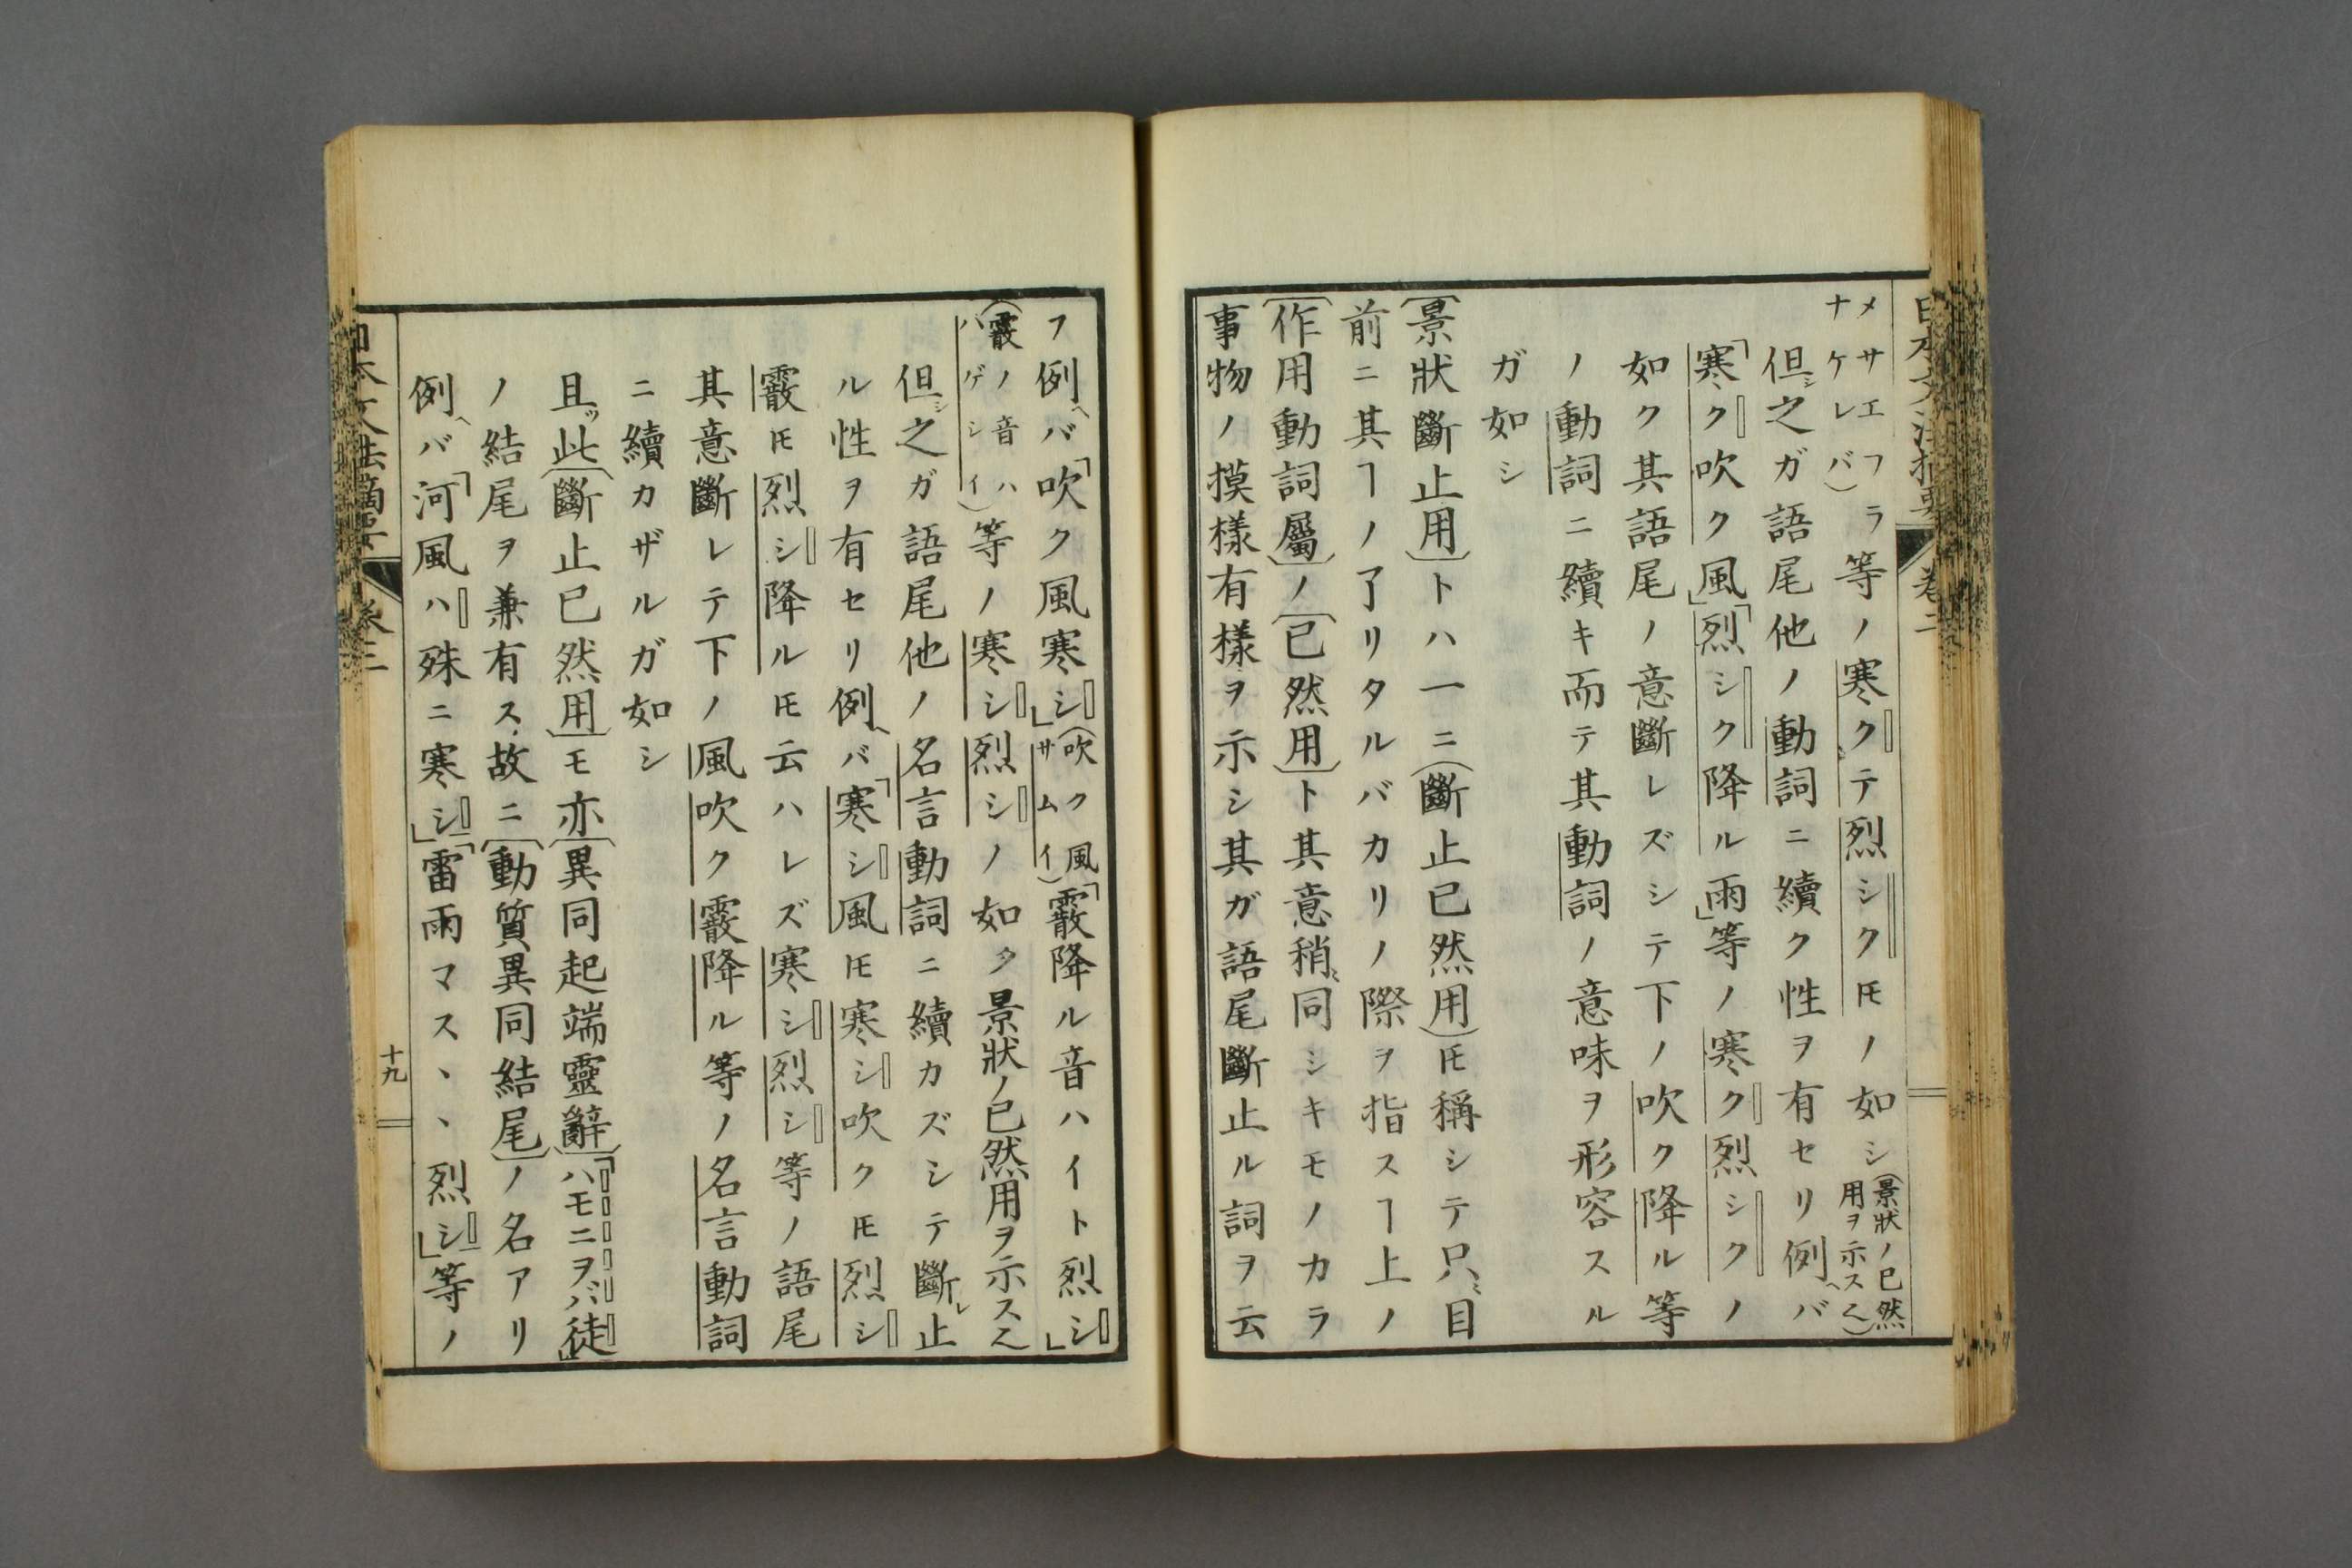 メサエフラ
ナケレバ)等ノ寒クテ烈シクㇳモノ如シ(景狀ノ已然
用ヲ示スヘ)
但シ之ガ語尾他ノ動詞ニ續ク性ヲ有セリ例ヘバ
「寒ク吹ク風」「烈シク降ル雨」等ノ寒ク烈シクノ
如ク其語尾ノ意斷レズシテ下ノ吹ク降ル等
ノ動詞ニ續キ而テ其動詞ノ意味ヲ形容スル
ガ如シ
(景狀斷止用)トハ一ニ(斷止已然用)𪜈稱シテ只ミ目
前ニ其ヿノ了リタルバカリノ際ヲ指スヿ上ノ
(作用動詞屬)ノ(已然用)ト其意稍ミ同シキモノカラ
事物ノ摸樣有樣ヲ示シ其ガ語尾斷止ル詞ヲ云
フ例ヘバ「吹ク風寒シ」(吹ク風
サムイ)「霰降ル音ハイト烈シ」
(霰ノ音ハ
ハゲシイ)等ノ寒シ烈シノ如ク景狀ノ已然用ヲ示スヘ
但シ之ガ語尾他ノ名言動詞ニ續カズシテ斷レ止
ル性ヲ有セリ例ヘバ「寒シ風𪜈寒シ吹ク𪜈烈シ
霰𪜈烈シ降ル𪜈云ハレズ寒シ烈シ等ノ語尾
其意斷レテ下ノ風吹ク霰降ル等ノ名言動詞
ニ續カザルガ如シ
且ツ此(斷止已然用)モ亦(異同起端靈辭)「ハモニヲバ徒」
ノ結尾ヲ兼有ス、故ニ(動質異同結尾)ノ名アリ
例ヘバ「河風ハ殊ニ寒シ」「雷雨マス、、烈シ」等ノ
日本文法摘要
卷三
十九